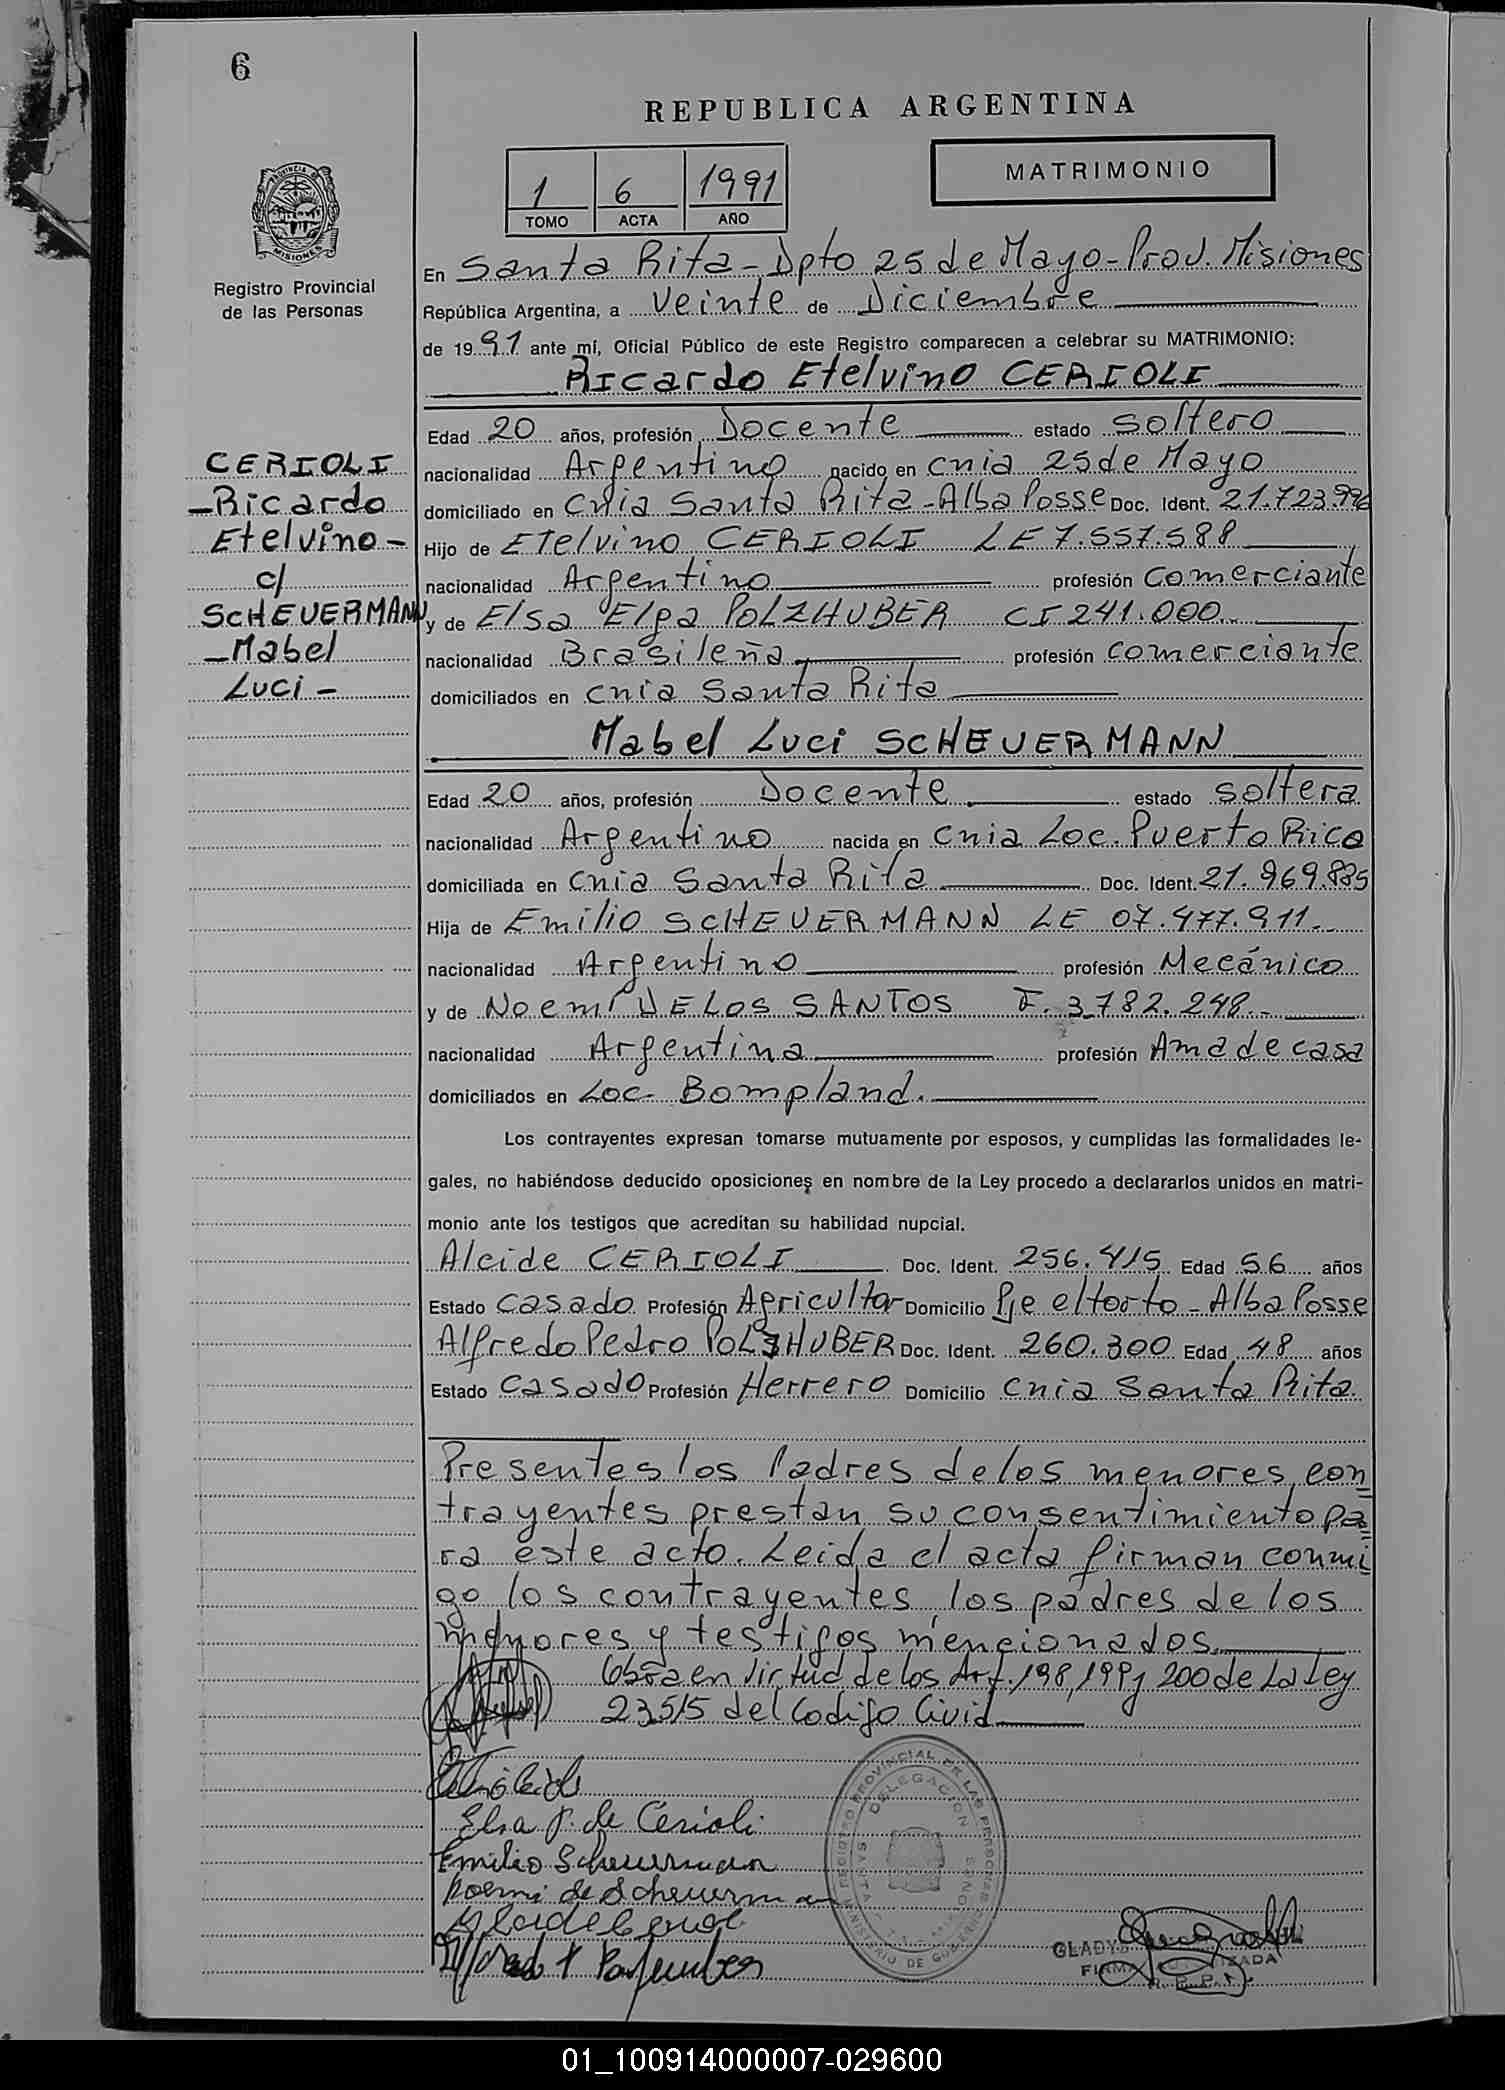 6
REPUBLICA ARGENTINA
MATRIMONIO
1 6 1991
TOMO ACTA AÑO
PROVINCIA DE
MISIONES
Registro Provincial
de las Personas
En Santa Rita - Dpto 25 de Mayo - Prov. Misiones
República Argentina, a Veinte de Diciembre
de 1991 ante mí, Oficial Público de este Registro comparecen a celebrar su MATRIMONIO:
Ricardo Etelvino CERIOLI
CERIOLI
- Ricardo
Etelvino -
c/
SCHEUERMANN
- Mabel
Luci -
Edad 20 años, profesión Docente estado Soltero
nacionalidad Argentino nacido en Cnia 25 de Mayo
domiciliado en Cnia Santa Rita - Alba Posse Doc. Ident. 21.723.996
Hijo de Etelvino CERIOLI LE 7.557.588
nacionalidad Argentino profesión Comerciante
y de Elsa Elga POLZHUBER CI 241.000
nacionalidad Brasileña profesión comerciante
domiciliados en Cnia Santa Rita
Mabel Luci SCHEUERMANN
Edad 20 años, profesión Docente estado Soltera
nacionalidad Argentino nacida en Cnia Loc. Puerto Rico
domiciliada en Cnia Santa Rita Doc. Ident. 21.969.885
Hija de Emilio SCHEUERMANN LE 07.477.911.-
nacionalidad Argentino profesión Mecánico
y de Noemí DE LOS SANTOS F. 3.782.248.-
nacionalidad Argentina profesión Ama de casa
domiciliados en Loc. Bompland.
Los contrayentes expresan tomarse mutuamente por esposos, y cumplidas las formalidades le-
gales, no habiéndose deducido oposiciones en nombre de la Ley procedo a declararlos unidos en matri-
monio ante los testigos que acreditan su habilidad nupcial.
Alcide CERIOLI Doc. Ident. 256.415 Edad 56 años
Estado Casado Profesión Agricultor Domicilio Pje el torto - Alba Posse
Alfredo Pedro POLZHUBER Doc. Ident. 260.300 Edad 48 años
Estado Casado Profesión Herrero Domicilio Cnia Santa Rita
Presentes los Padres de los menores con
trayentes prestan su consentimiento pa
ra este acto. Leida el acta firman conmi
go los contrayentes, los padres de los
menores y testigos mencionados.
Obra en Virtud de los Art. 198, 199 y 200 de La Ley
23515 del Codigo Civil
Elsa P. de Cerioli
Emilio Scheuermann
Noemi de Scheuerman
REGISTRO PROVINCIAL DE LAS PERSONAS
DELEGACION
SANTA RITA
MINISTERIO DE GOBIERNO
GLADYS
FIRMA AUTORIZADA
R. P. P.
01_100914000007-029600